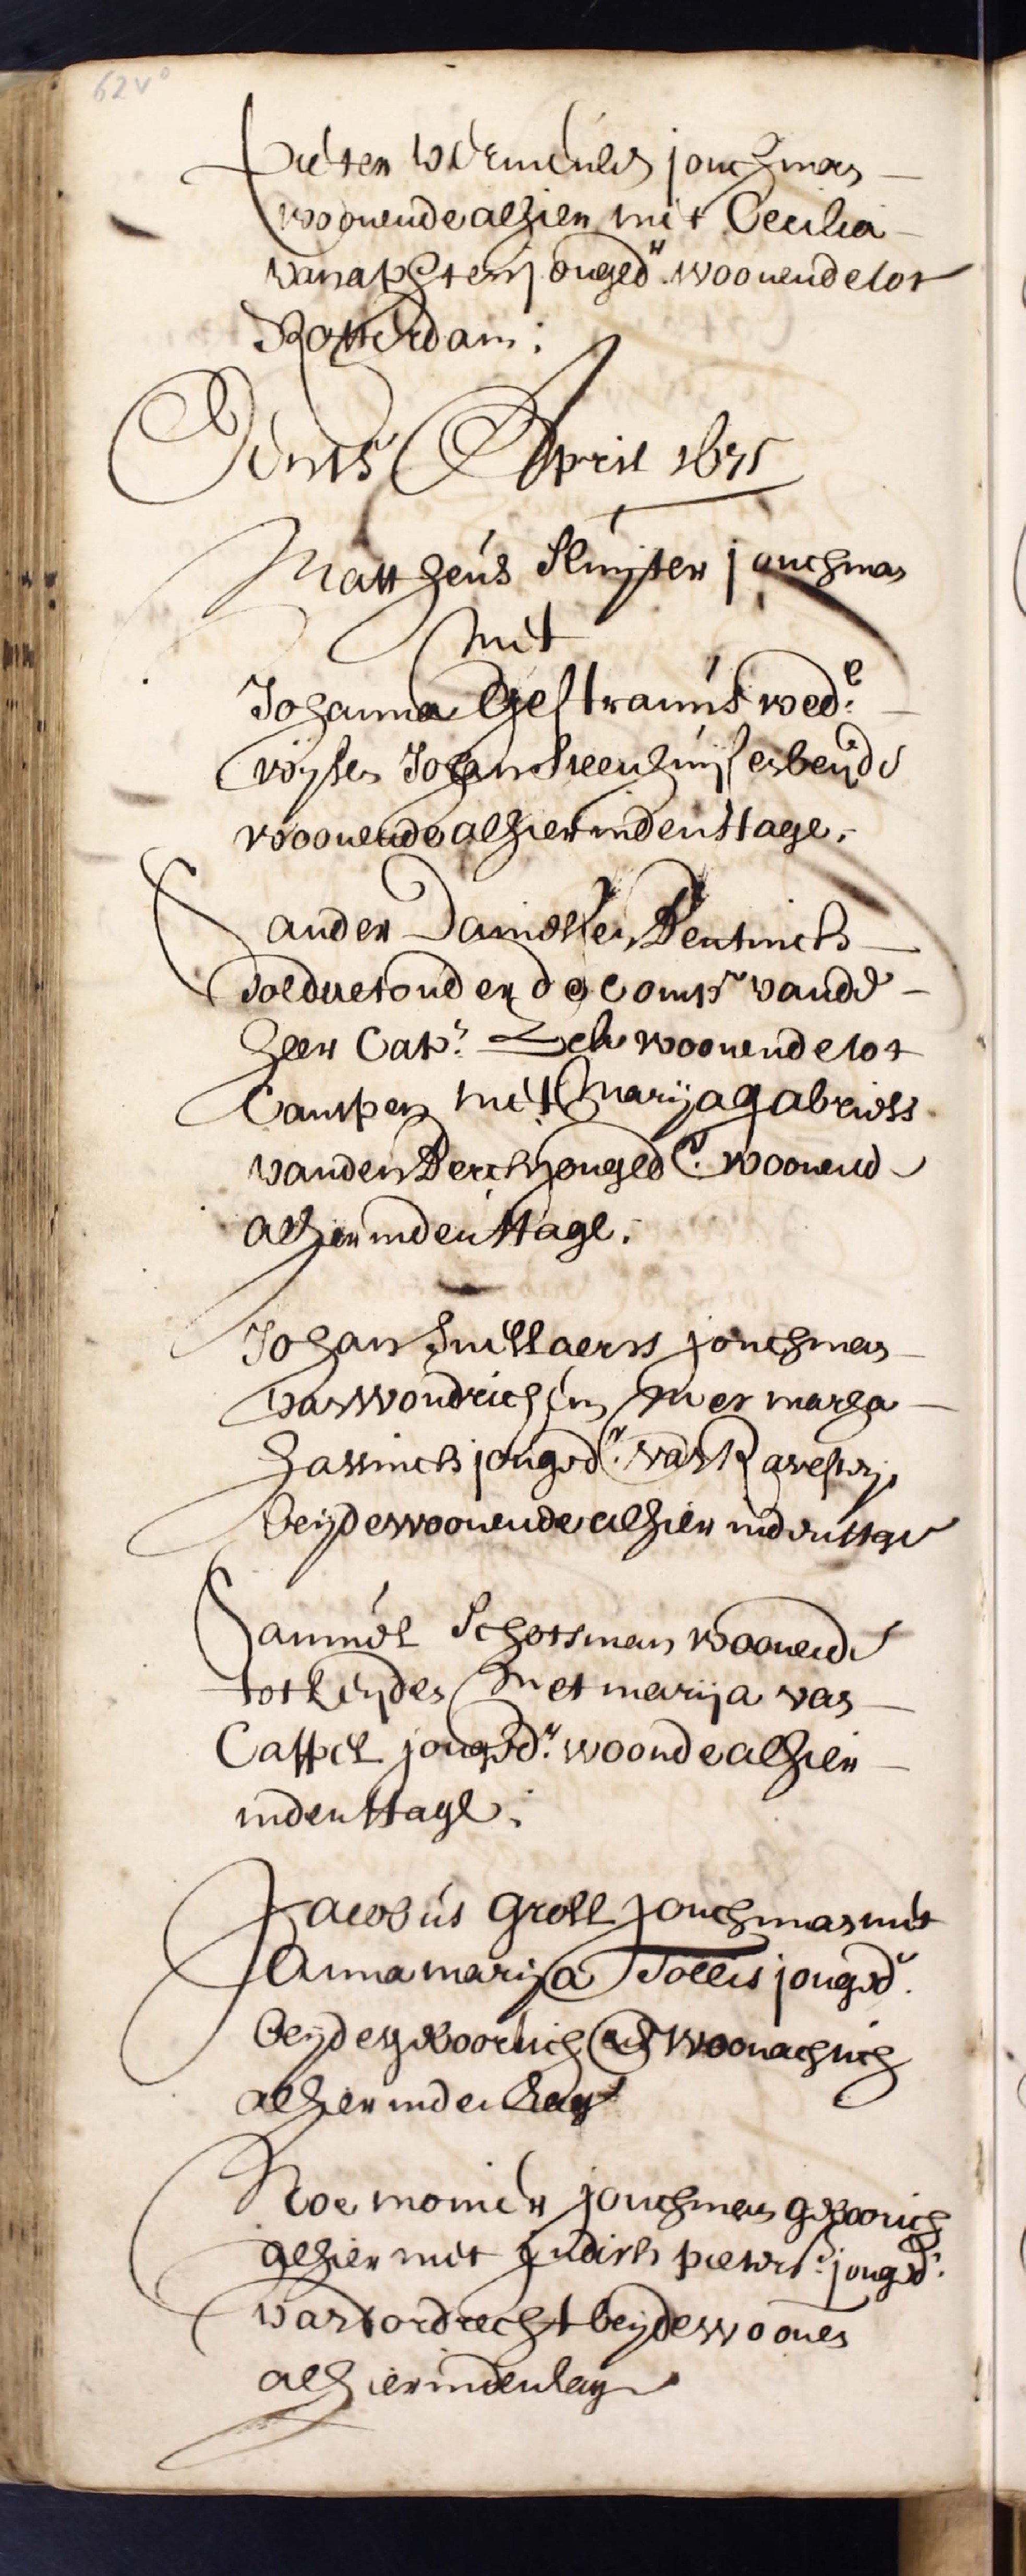 62v°
Pieter vermeulen jonchman
woonende alhier met Cecilia
van aksten jonged.r woonende tot
Rotterdam:
Den 15 April 1675
Mattheus Sluijter jonchman
met
Johanna wed.e
wijlen Johan beijde
woonende alhier inden Hage.
Sander Bentinck
soldaet onder de comp.e vande
heer Cap.n woonende tot
Campen met Marija gabriels
vanden Berch jonged.r woonend
alhier inden Hage.
Johan Snellaerts jonchman
van Woudrichem met maria
jonged.r van
beijde woonende alhier inden Hage
Samuel Schotsman woonende
tot Leijden met marija van
Cappel jonged.r woonde alhier
inden Hage.
Jacobus Groll jonchman met
Anna marija jonged.r
beijde geboortich en woonachtich
alhier inden hage
jonchman geboortich
alhier met Judith pieters jonged.r
van dordrecht beijde woonen
alhier inden hage